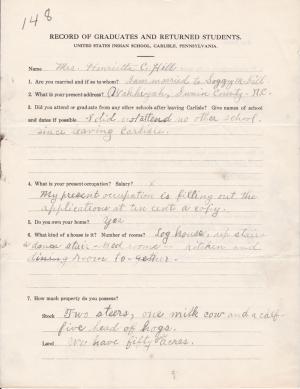 148
RECORD OF GRADUATES AND RETURNED STUDENTS.
UNITED STATES INDIAN SCHOOL, CARLISLE, PENNSYLVANIA.
Name Mrs. Henrietta C. Hill
1. Are you married and if so to whom? I am married to Soggy M. Hill
2. What is your present address? Wahheyah, Swain County N.C.
3. Did you attend or graduate from any other schools after leaving Carlisle? Give names of school
and dates if possible. I did not attend no other school
since leaving Carlisle.
4. What is your present occupation? Salary?
My present occupation is filling out the
applications at ten cents a copy.
5. Do you own your home? Yes
6. What kind of house is it? Number of rooms? Log house, up stair
& down stair - bed rooms - kitchen and
dining room to-gether.
7. How much property do you possess?
Stock Two steers, one milk cow and a calf
five head of hogs.
Land We have fifty acres.